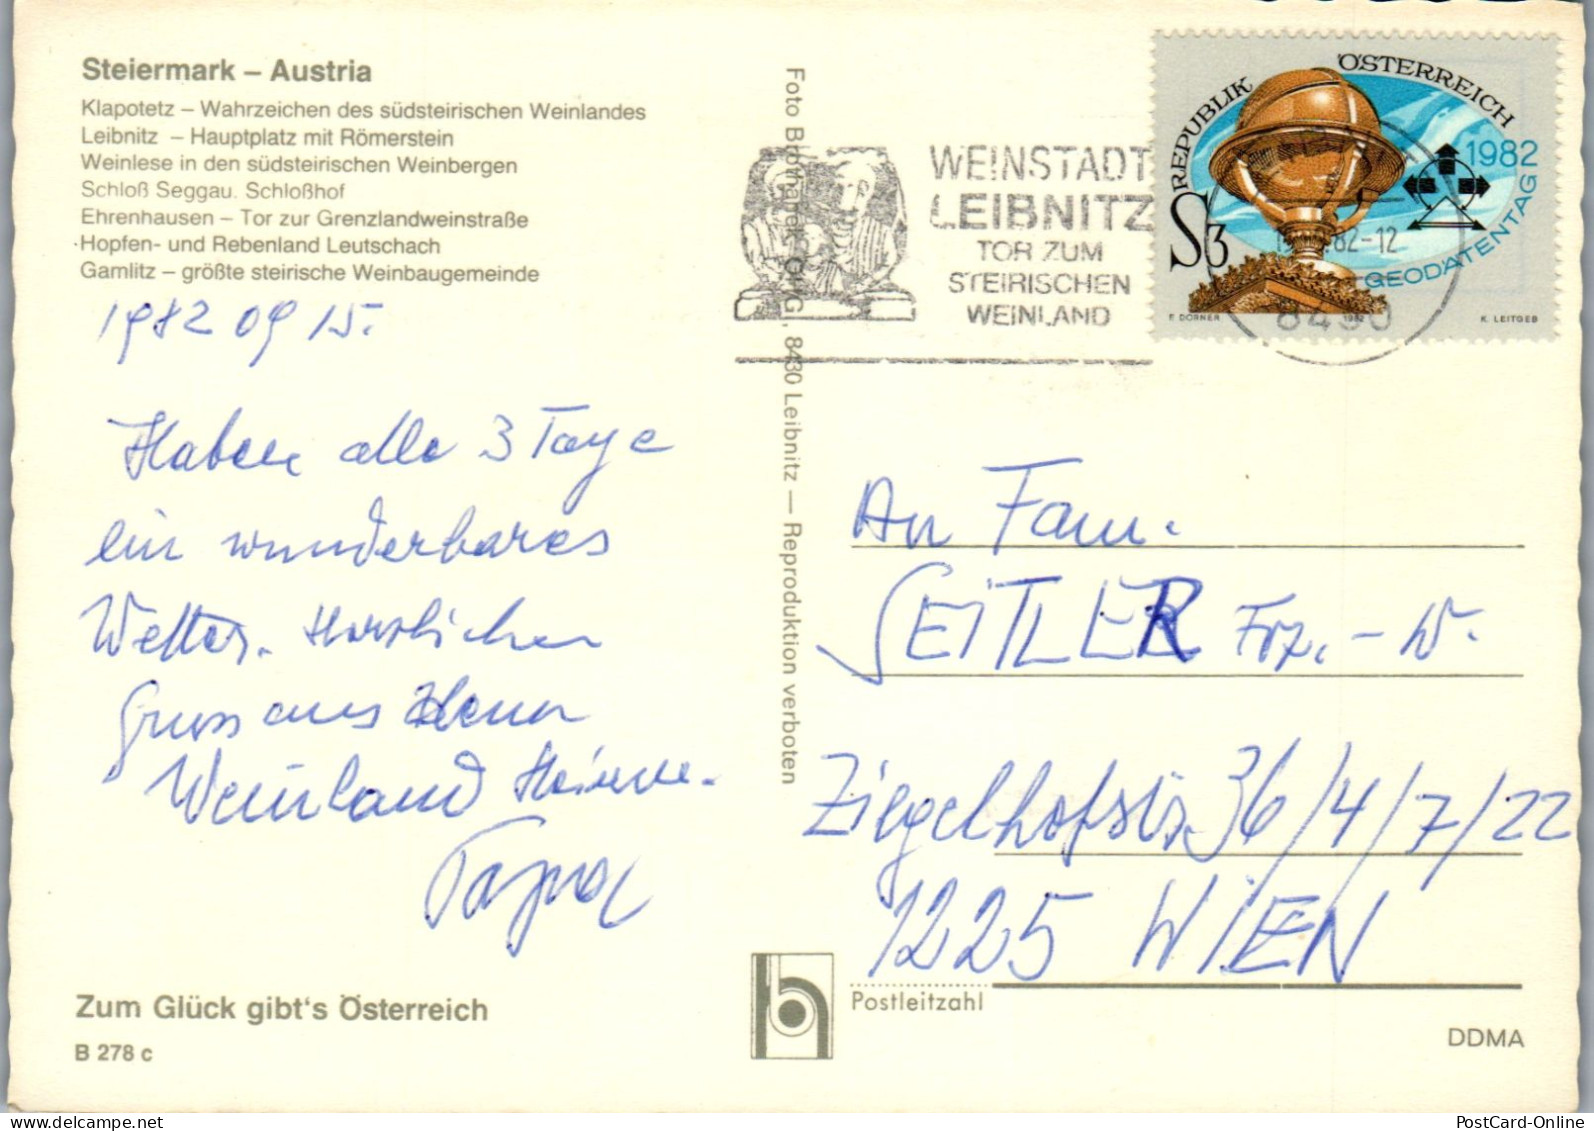 Steiermark – Austria
Klapotetz – Wahrzeichen des südsteirischen Weinlandes
Leibnitz – Hauptplatz mit Römerstein
Weinlese in den südsteirischen Weinbergen
Schloß Seggau. Schloßhof
Ehrenhausen – Tor zur Grenzlandweinstraße
Hopfen- und Rebenland Leutschach
Gamlitz – größte steirische Weinbaugemeinde
1982 09 15.
Haben alle 3 Tage
ein wunderbares
Wetter. Herzlichen
Gruss aus dem
Weinland
Papa
Zum Glück gibt's Österreich
B 278 c
Foto Brotharek OHG, 8430 Leibnitz — Reproduktion verboten
WEINSTADT
LEIBNITZ
TOR ZUM
STEIRISCHEN
WEINLAND
REPUBLIK ÖSTERREICH
1982
S3
GEODÄTENTAG
F. DORNER 1982 K. LEITGEB
82-12
8430
An Fam.
SEITLER Frz. - W.
Ziegelhofstr. 36/4/7/22
1225 WIEN
Postleitzahl
DDMA
PostCard-Online